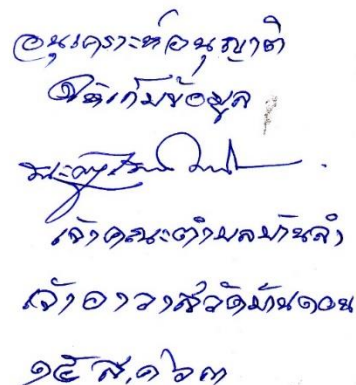 อนุเคราะห์อนุญาติ
ให้เก็บข้อมูล
เจ้าคณะตำบลบ้านลำ
เจ้าอาวาสวัดบ้านดอน
๑๕ ส.ค ๖๓